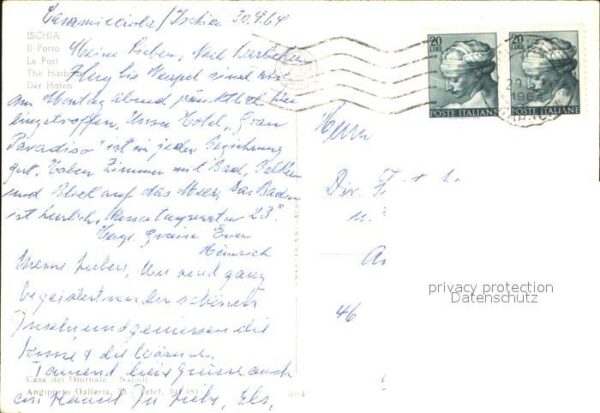 Casamicciola/Ischia 30.9.64
ISCHIA
Il Porto
Le Port
The Harbour
Der Hafen
Meine Lieben, Nach herrlichem
Flug bis Neapel sind wir
am Montag abend pünktlich hier
eingetroffen. Unser Hotel „Gran
Paradiso" ist in jeder Beziehung
gut. Haben Zimmer mit Bad, Balkon
und Blick auf das Meer. Das Baden
ist herrlich, Wassertemperatur 23°.
Herzl. Grüsse Euer
Heinrich
Meine Lieben, Wir sind ganz
begeistert von der schönen
Insel und geniessen die
Sonne & die Wärme.
Tausend liebe Grüsse auch
an
Casa del Giornale - Napoli
Angiporto Galleria, 
20
LIRE
POSTE ITALIANE
20
LIRE
POSTE ITALIANE
Herrn
Dir.
46
privacy protection
Datenschutz